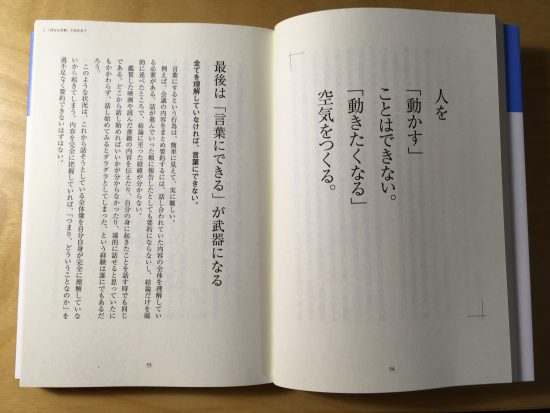 人を
「動かす」
ことはできない。
「動きたくなる」
空気をつくる。
54
最後は「言葉にできる」が武器になる
全てを理解していなければ、言葉にできない。
言葉にするという行為は、簡単に見えて、実に難しい。
例えば、会議の内容をまとめ要約するには、話し合われていた内容の全体を理解してい
る必要がある。話が進んでいった順に報告したとしても要約にならないし、結論だけを端
的に述べたところで、結論に至った経緯が分からない。
鑑賞した映画や読んだ書籍の内容を伝えたり、自分の身に起きたことを話す時でも同じ
である。どこから話し始めればいいかが分からなかったり、端的に話せると思っていたに
もかかわらず、話し始めてみるとダラダラとしてしまった、という経験は誰にでもあるだ
ろう。
このような状況は、これから話そうとしている全体像を自分自身が完全に理解していな
いから起きてしまう。内容を完全に把握していれば、「つまり、どういうことなのか」を
過不足なく要約できないはずはない。
55